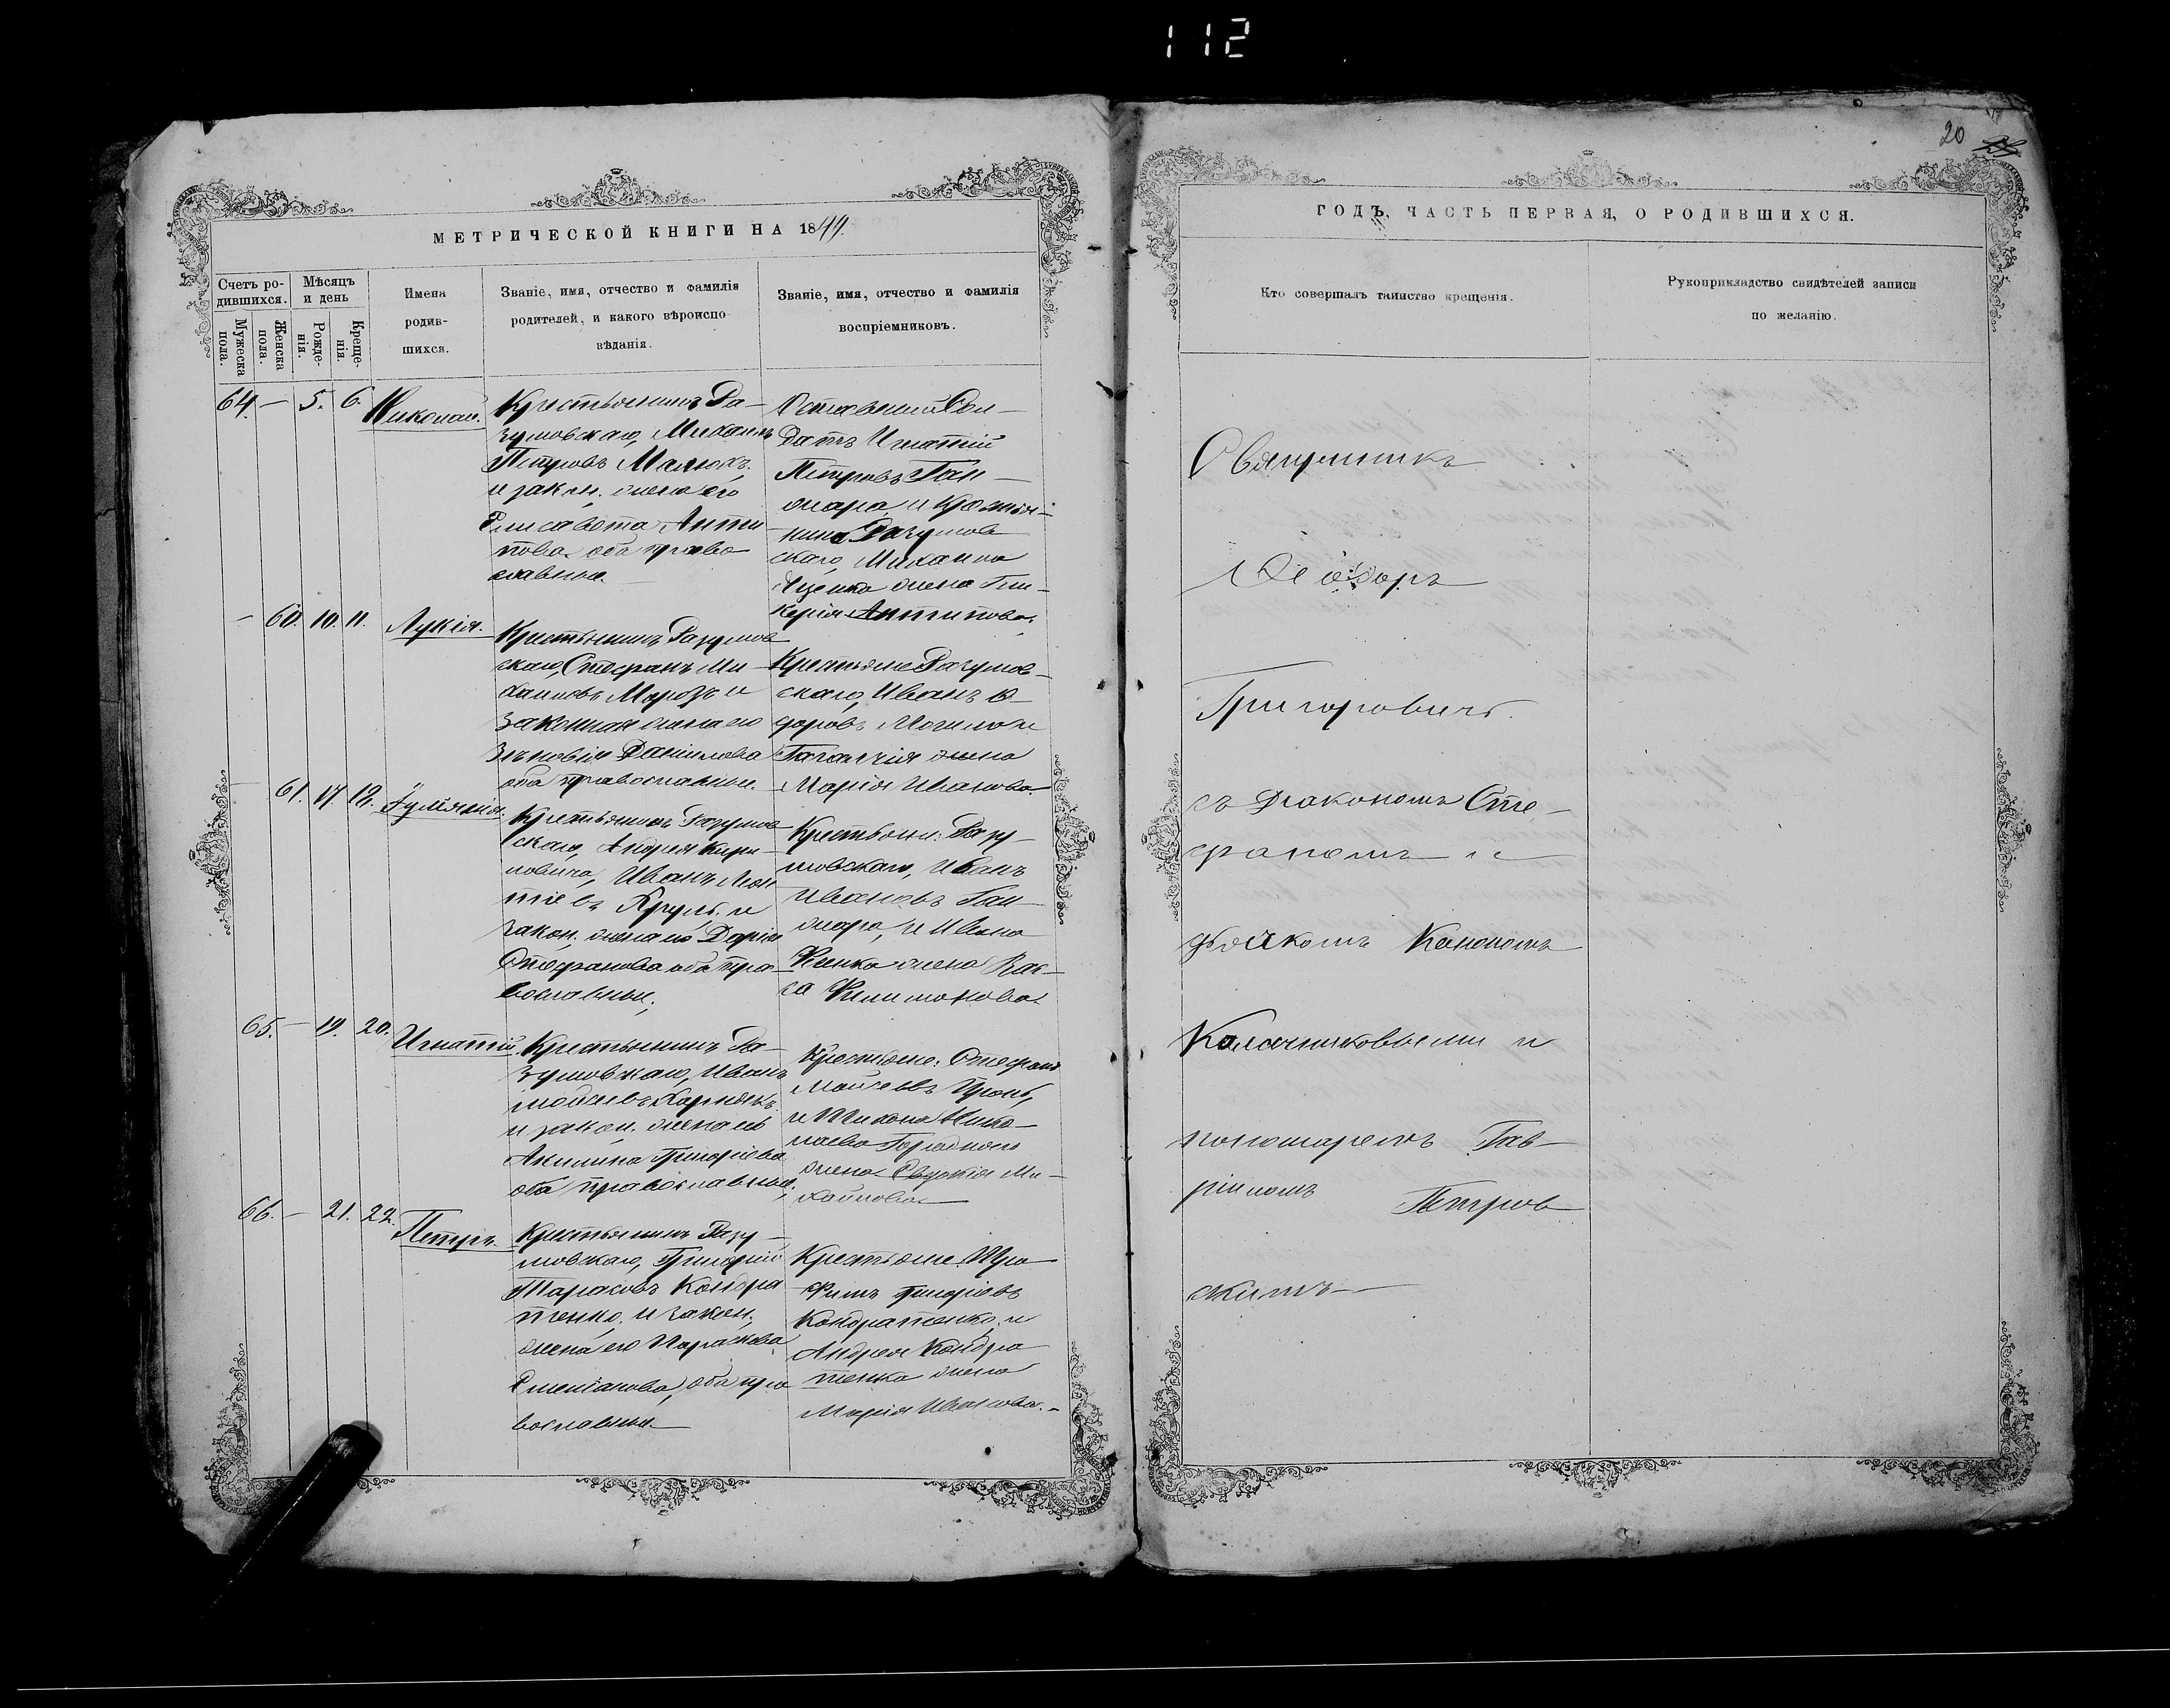 112
20
МЕТРИЧЕСКОЙ КНИГИ НА 18
Счетъ ро-
дившихся.
Мужеска
пола.
Женска
пола.
Мѣсяцъ
и день
Рожде-
нія.
Креще-
нія.
Имена
родив-
шихся.
Званіе, имя, отчество и фамилія
родителей, и какого вѣроиспо-
вѣданія.
Званіе, имя, отчество и фамилія
воспріемниковъ.
64. — 5. 6. Николай.
Крестьянинъ Ра-
зумовскаго, Михаилъ
Петровъ Малюкъ.
и закон. жена его
Елисавета Анти-
пова оба право
славные.
Отставный Сол-
датъ Игнатій
Петровъ Ган-
жара и крестья-
нина Разумов
скаго, Михаила
Яценка жена Гли-
керія Антипова.
— 60. 10. 11. Лукія.
Крестьянинъ Разумов
скаго, Стефанъ Ми-
хаиловъ Морозъ и
законная жена его
Зѣновія Данилова
оба православные.
Крестьяне Разумов-
скаго, Иванъ
жена
Марія Иванова.
— 61. 17. 18. Іуліянія.
Крестьянинъ Разумов
скаго, Андрея Кири-
ловича, Иванъ Леон
тіевъ и
закон. жена его Дарія
Стефанова оба пра-
вославные.
Крестьяни: Разу-
мовскаго, Иванъ
Ивановъ Ган-
жара, и Ивана
жена Вас-
са Филимонова.
65. — 19. 20. Игнатій.
Крестьянинъ Ра-
зумовскаго, Иванъ
и закон. жена его
Акилина Григоріева
оба православные.
Крестьяне: Стефанъ
Моисеевъ
и Тихона Нико-
лаева
жена Евдокія Ми-
хайлова
66. — 21. 22. Петръ.
Крестьянинъ Разу-
мовскаго, Григорій
Тарасовъ Кондра
тенко. и закон.
жена его Параскева
Емеліанова, оба пра
вославные.
Крестьяне. Тро
фимъ Григоріевъ
Кондратенко, и
Андрея Кондра
тенка жена
Марія Иванова.
ГОДЪ, ЧАСТЬ ПЕРВАЯ, О РОДИВШИХСЯ.
Кто совершалъ таинство крещенія.
Рукоприкладство свидѣтелей записи
по желанію.
Священникъ
Ѳеодоръ
Григоровичъ.
съ Діакономъ Сте-
фаномъ и
дьячкомъ Конономъ
Колесниковыми и
пономаремъ Гав-
ріиломъ Петров
скимъ